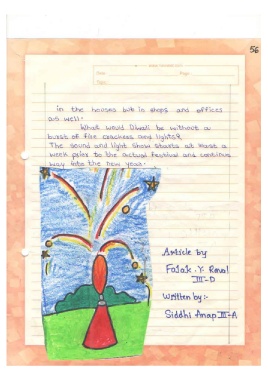 56
Date
Page
in the houses but in shops and offices
as well.
What would Diwali be without a
burst of fire crackers and lights?
The sound and light show starts at least a
week prior to the actual festival and continue
way into the new year.
Article by
III-D
Written by:-
Siddhi Anap III-A